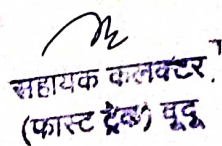 सहायक कलक्टर,
(फास्ट ट्रेक) दूदू